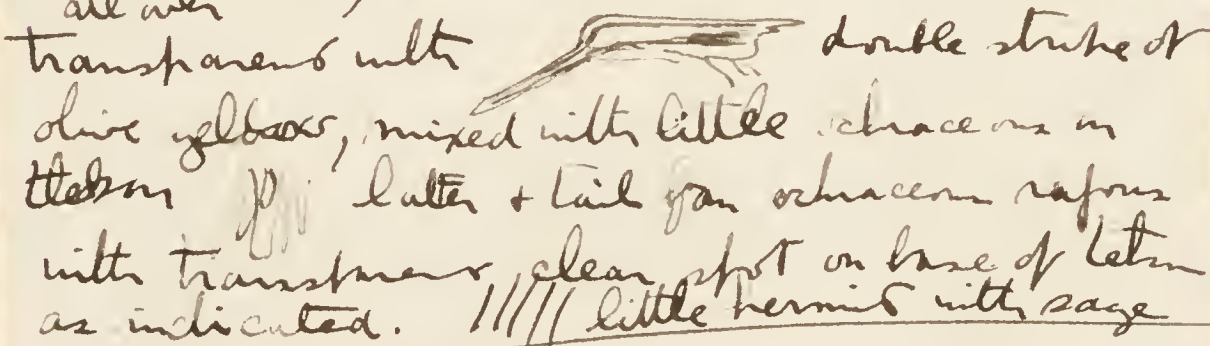 all over
transparent with double stripe of
olive yellow, mixed with little ochraceous on
telson latter + tail fan ochraceous rufous
with transparent, clear spot on base of telson
as indicated. little hermit with sage